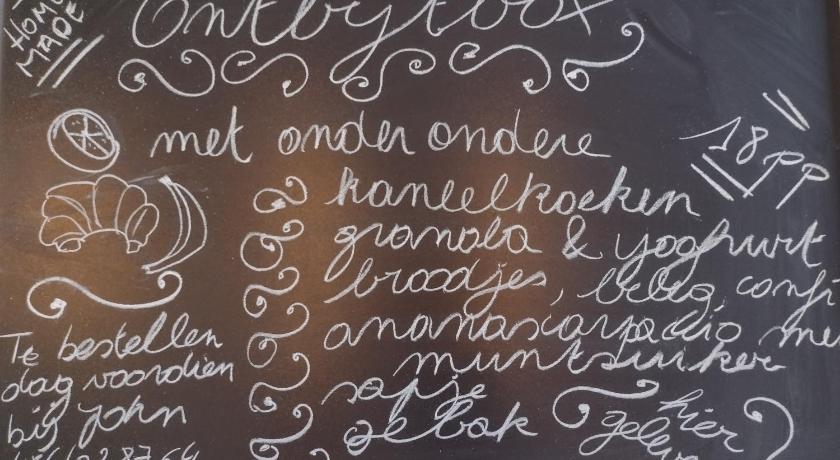 HOME
MADE
Ontbytbox
met onder ondere
18 pp
kaneelkoeken
granola & yoghurt
broodjes, beleg, confi
ananascarpacio me
muntsuiker
sapje
gebak
hier
Te bestellen
dag voordien
bij John